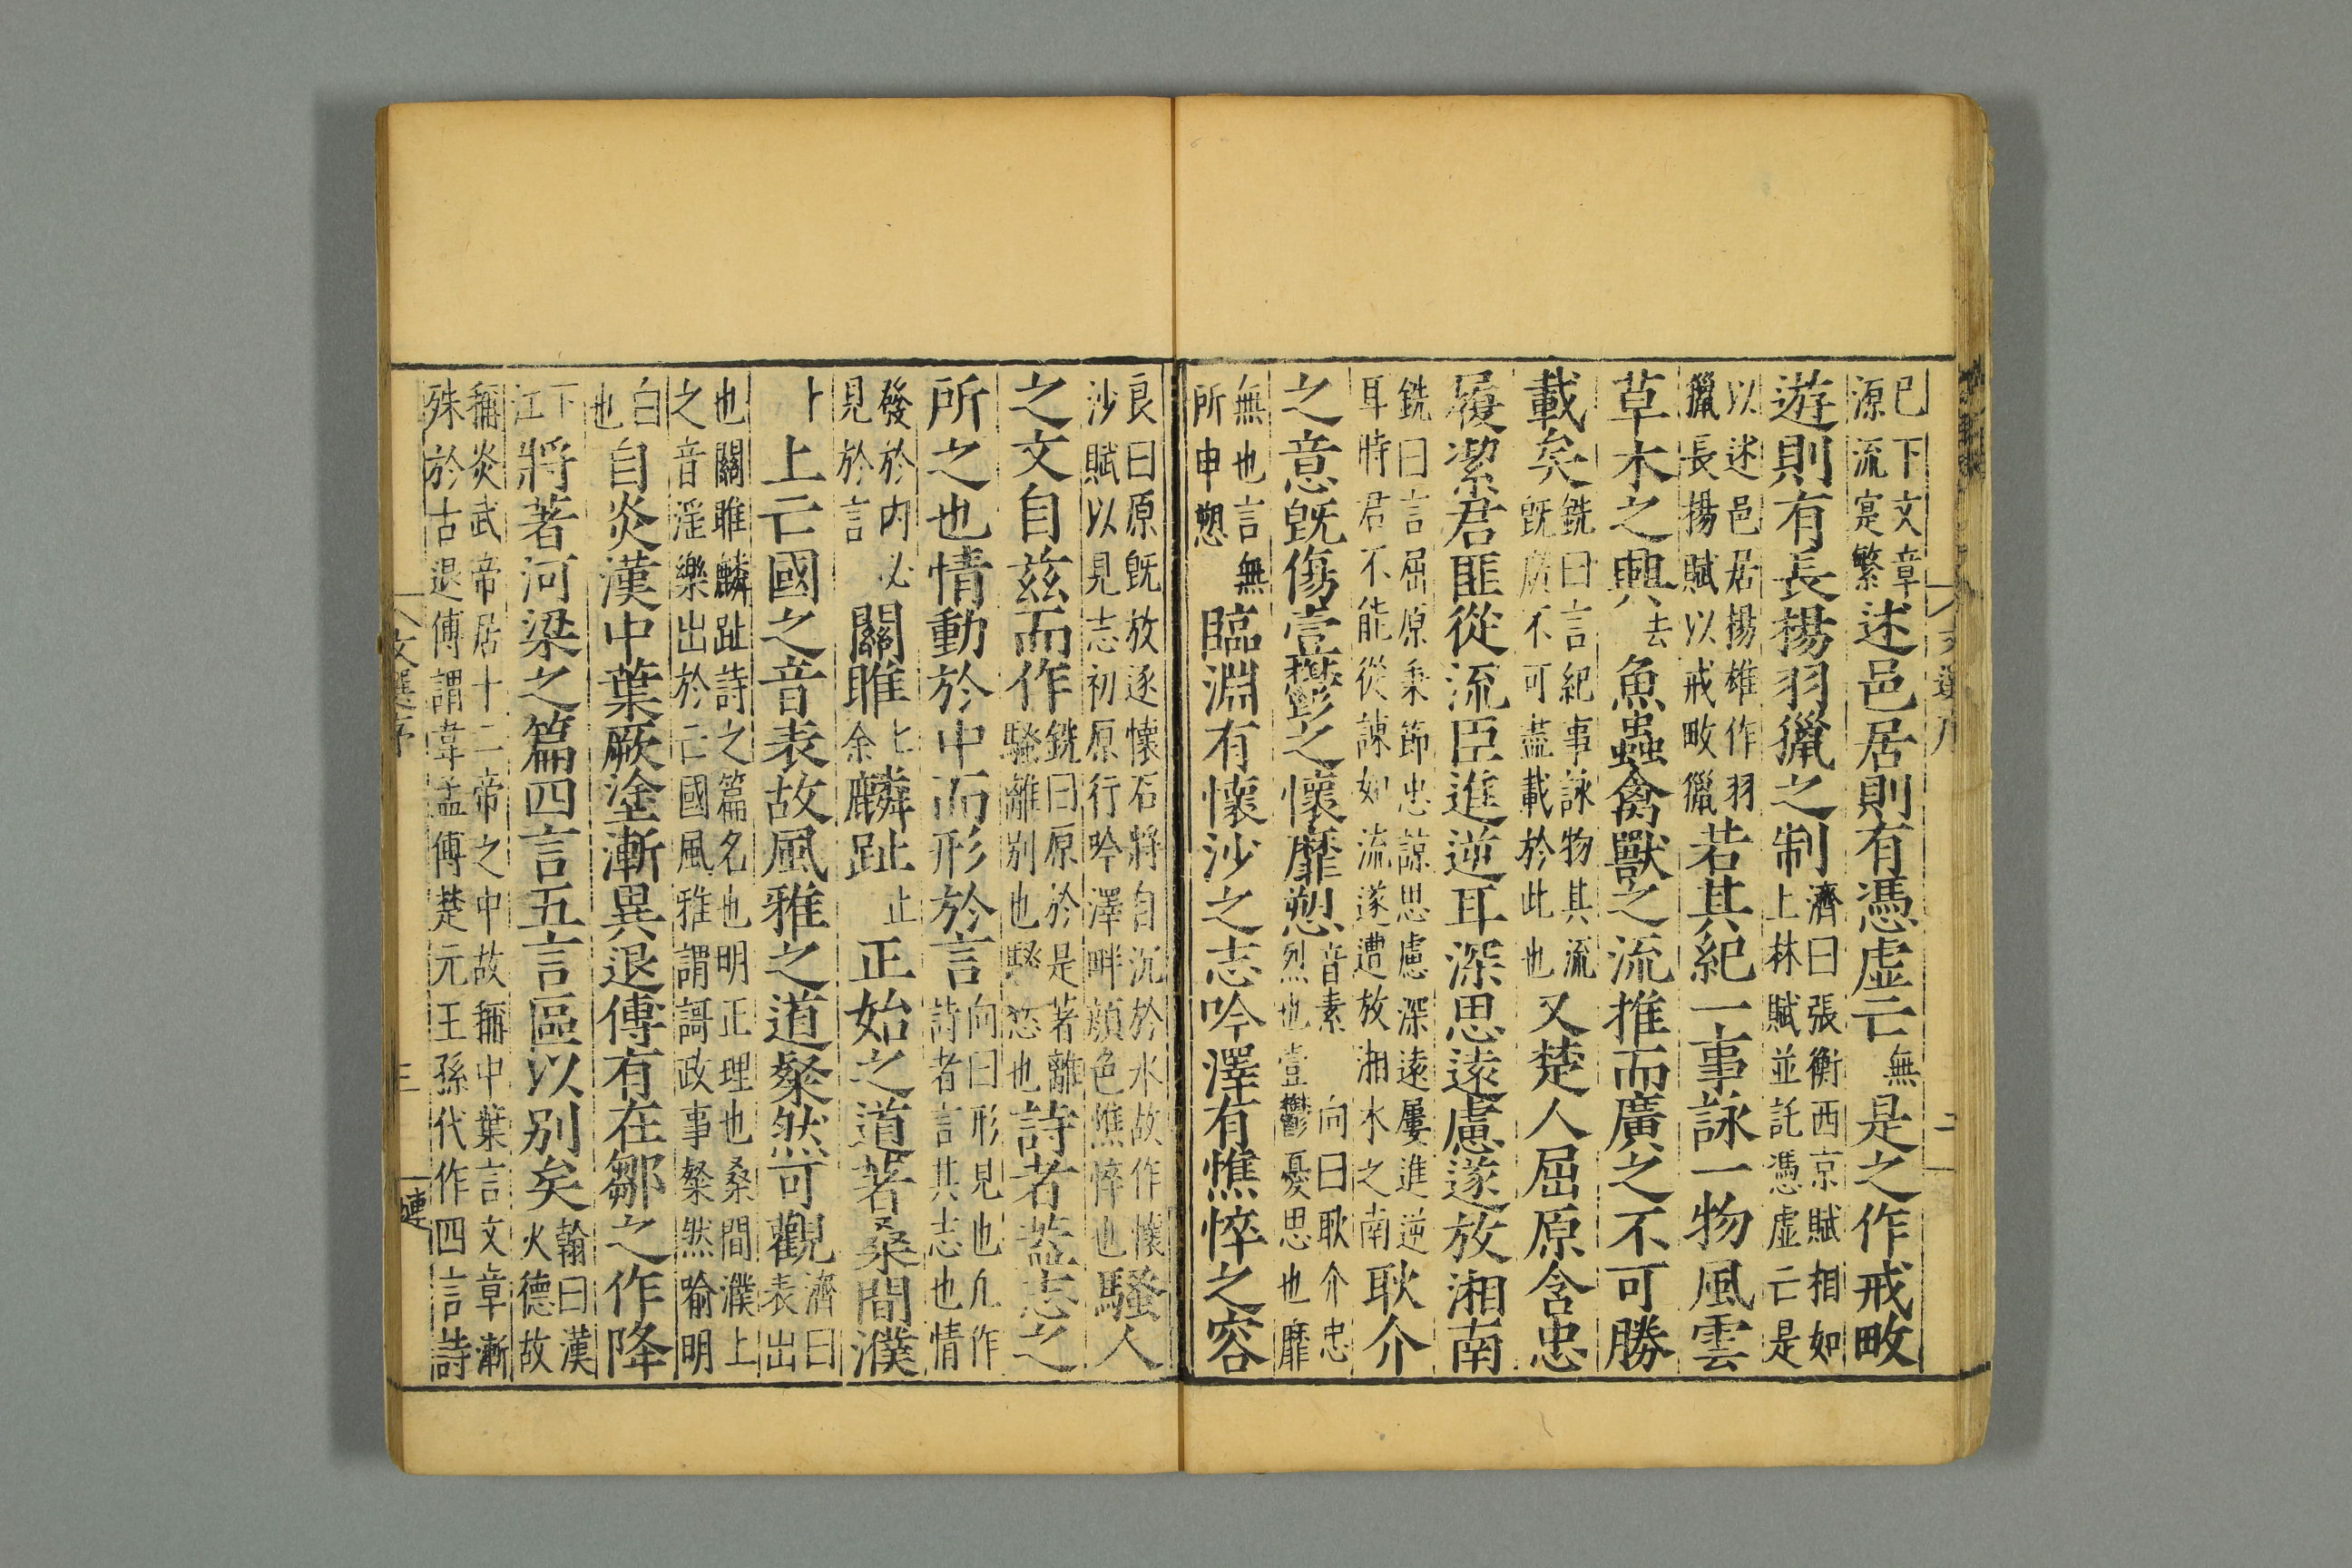 已下文章源流寔繁述邑居則有憑虛亡無是之作戒畋
遊則有長楊羽獵之制濟曰張衡西京賦相如上林賦並託憑虛亡是
以述邑居揚雄作羽獵長揚賦以戒畋獵若其紀一事詠一物風雲
草木之興去魚蟲禽獸之流推而廣之不可勝
載矣銑曰言紀事詠物其流旣廣不可盡載於此也又楚人屈原含忠
履潔君匪從流臣進逆耳深思遠慮遂放湘南
銑曰言屈原秉節忠諒思慮深遠屢進逆耳時君不能從諫如流遂遭放湘水之南耿介
之意旣傷壹鬱之懷靡愬音素向曰耿介忠烈也壹鬱憂思也靡
無也言無所申愬臨淵有懷沙之志吟澤有憔悴之容
良曰原旣放逐懷石將自沉於水故作懷沙賦以見志初原行吟澤畔顔色憔悴也騷人
之文自茲而作銑曰原於是著離騷離別也騷愁也詩者蓋志之
所之也情動於中而形於言向曰形見也凡作詩者言其志也情
發於内必見於言關雎七余麟趾止正始之道著桑間濮
卜上亡國之音表故風雅之道粲然可觀濟曰表出
也關雎麟趾詩之篇名也明正理也桑間濮上之音淫樂出於亡國風雅謂謌政事粲然喻明
白也自炎漢中葉厥塗漸異退傅有在鄒之作降
下江將著河梁之篇四言五言區以別矣翰曰漢火德故
稱炎武帝居十二帝之中故稱中葉言文章漸殊於古退傅謂韋孟傅楚元王孫代作四言詩
文選序
三